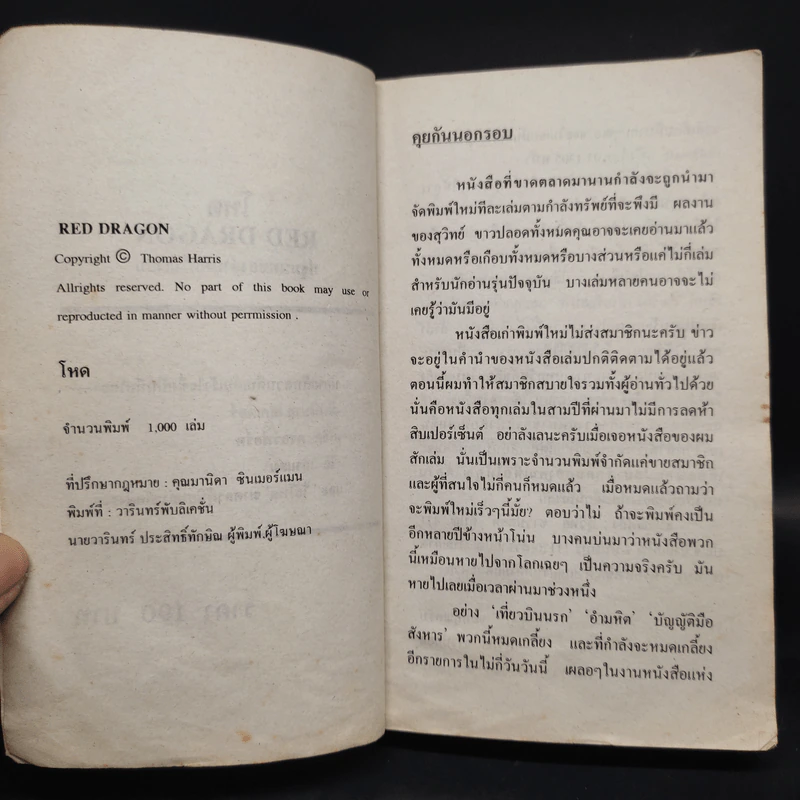 RED DRAGON
Copyright © Thomas Harris
Allrights reserved. No part of this book may use or
reproducted in manner without perrmission .
โหด
จำนวนพิมพ์ 1,000 เล่ม
ที่ปรึกษากฎหมาย : คุณมานิดา ซินเมอร์แมน
พิมพ์ที่ : วารินทร์พับลิเคชั่น
นายวารินทร์ ประสิทธิ์ทักษิณ ผู้พิมพ์.ผู้โฆษณา
คุยกันนอกรอบ
หนังสือที่ขาดตลาดมานานกำลังจะถูกนำมา
จัดพิมพ์ใหม่ทีละเล่มตามกำลังทรัพย์ที่จะพึงมี ผลงาน
ของสุวิทย์ ขาวปลอดทั้งหมดคุณอาจจะเคยอ่านมาแล้ว
ทั้งหมดหรือเกือบทั้งหมดหรือบางส่วนหรือแค่ไม่กี่เล่ม
สำหรับนักอ่านรุ่นปัจจุบัน บางเล่มหลายคนอาจจะไม่
เคยรู้ว่ามันมีอยู่
หนังสือเก่าพิมพ์ใหม่ไม่ส่งสมาชิกนะครับ ข่าว
จะอยู่ในคำนำของหนังสือเล่มปกติติดตามได้อยู่แล้ว
ตอนนี้ผมทำให้สมาชิกสบายใจรวมทั้งผู้อ่านทั่วไปด้วย
นั่นคือหนังสือทุกเล่มในสามปีที่ผ่านมาไม่มีการลดห้า
สิบเปอร์เซ็นต์ อย่าลังเลนะครับเมื่อเจอหนังสือของผม
สักเล่ม นั่นเป็นเพราะจำนวนพิมพ์จำกัดแค่ขายสมาชิก
และผู้ที่สนใจไม่กี่คนก็หมดแล้ว เมื่อหมดแล้วถามว่า
จะพิมพ์ใหม่เร็วๆนี้มั้ย? ตอบว่าไม่ ถ้าจะพิมพ์คงเป็น
อีกหลายปีข้างหน้าโน่น บางคนบ่นมาว่าหนังสือพวก
นี้เหมือนหายไปจากโลกเฉยๆ เป็นความจริงครับ มัน
หายไปเลยเมื่อเวลาผ่านมาช่วงหนึ่ง
อย่าง 'เที่ยวบินนรก' 'อำมหิต' 'บัญญัติมือ
สังหาร' พวกนี้หมดเกลี้ยง และที่กำลังจะหมดเกลี้ยง
อีกรายการในไม่กี่วันวันนี้ เผลอๆในงานหนังสือแห่ง